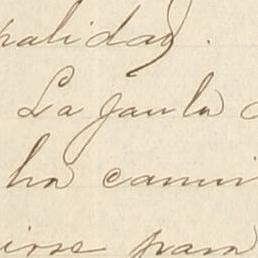 palidad.
La jaula
ha cami
irse para